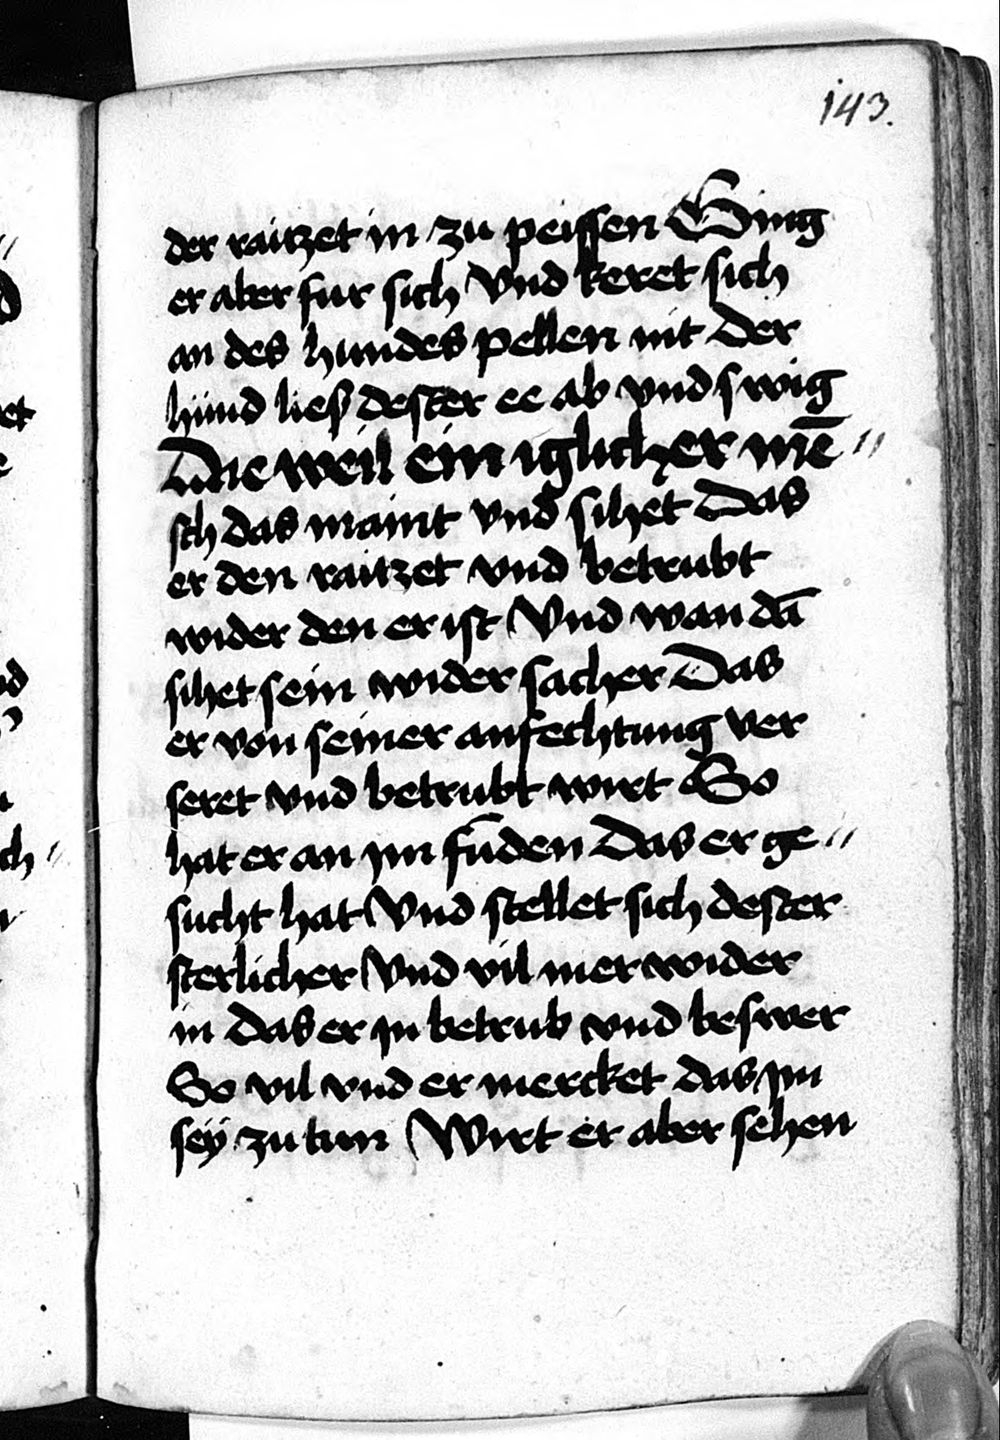 143.
der raitzet in zu peissen Ging
er aber fur sich Vnd keret sich
an des hundes pellen nit Der
hund lies dester ee ab vnd swig
Die weil ein iglicher mē〃
sch das maint vnd sihet Das
er den raitzet vnd betrubt
wider den er ist Vnd wan dā
sihet sein wider sacher Das
er von seiner anfechtung ver
seret vnd betrubt wirt So
hat er an ym fūden Das er ge〃
sucht hat Vnd stellet sich dester
sterlicher Vnd vil mer wider
in Das er yn betrub vnd beswer
So vil vnd er mercket das ym
sey zu tun Wirt er aber sehen